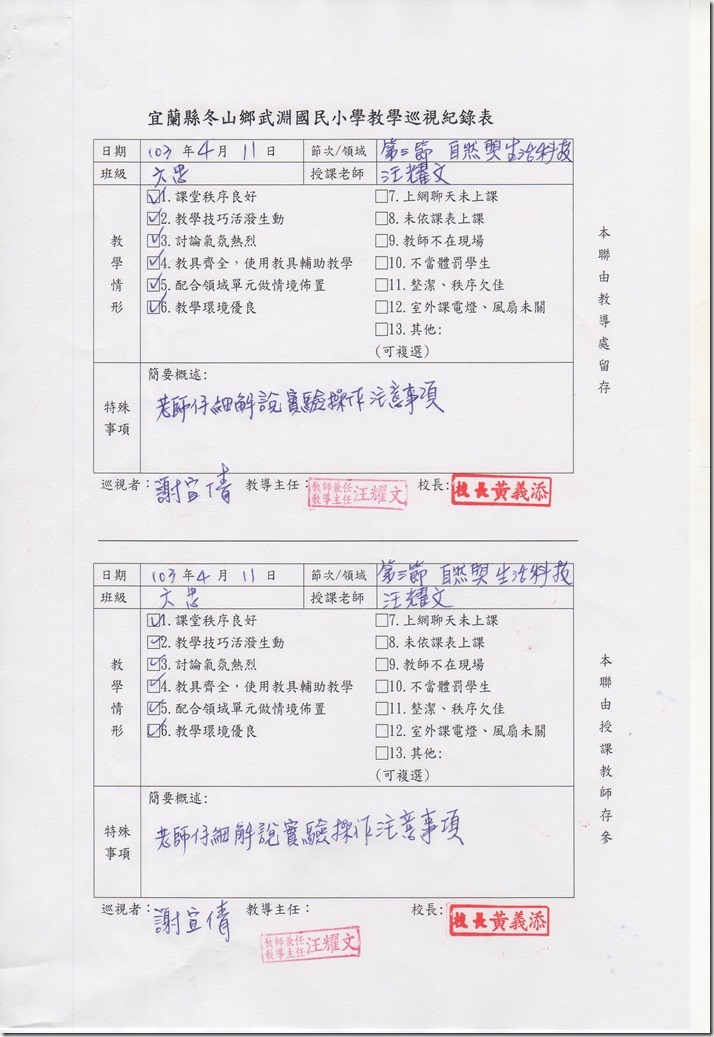 宜蘭縣冬山鄉武淵國民小學教學巡視紀錄表
日期 103 年 4 月 11 日 節次/領域 第三節 自然與生活科技
班級 六忠 授課老師 汪耀文
教學情形
☑1. 課堂秩序良好 □7. 上網聊天未上課
☑2. 教學技巧活潑生動 □8. 未依課表上課
☑3. 討論氣氛熱烈 □9. 教師不在現場
☑4. 教具齊全,使用教具輔助教學 □10. 不當體罰學生
☑5. 配合領域單元做情境佈置 □11. 整潔、秩序欠佳
☑6. 教學環境優良 □12. 室外課電燈、風扇未關
□13. 其他:
(可複選)
特殊事項
簡要概述:
老師仔細解說實驗操作注意事項
巡視者:謝宜倩 教導主任: 教師兼任教導主任 汪耀文 校長: 校長黃義添
本聯由教導處留存
日期 103 年 4 月 11 日 節次/領域 第三節 自然與生活科技
班級 六忠 授課老師 汪耀文
教學情形
☑1. 課堂秩序良好 □7. 上網聊天未上課
☑2. 教學技巧活潑生動 □8. 未依課表上課
☑3. 討論氣氛熱烈 □9. 教師不在現場
☑4. 教具齊全,使用教具輔助教學 □10. 不當體罰學生
☑5. 配合領域單元做情境佈置 □11. 整潔、秩序欠佳
☑6. 教學環境優良 □12. 室外課電燈、風扇未關
□13. 其他:
(可複選)
特殊事項
簡要概述:
老師仔細解說實驗操作注意事項
巡視者:謝宜倩 教導主任: 校長: 校長黃義添
教師兼任教導主任 汪耀文
本聯由授課教師存參